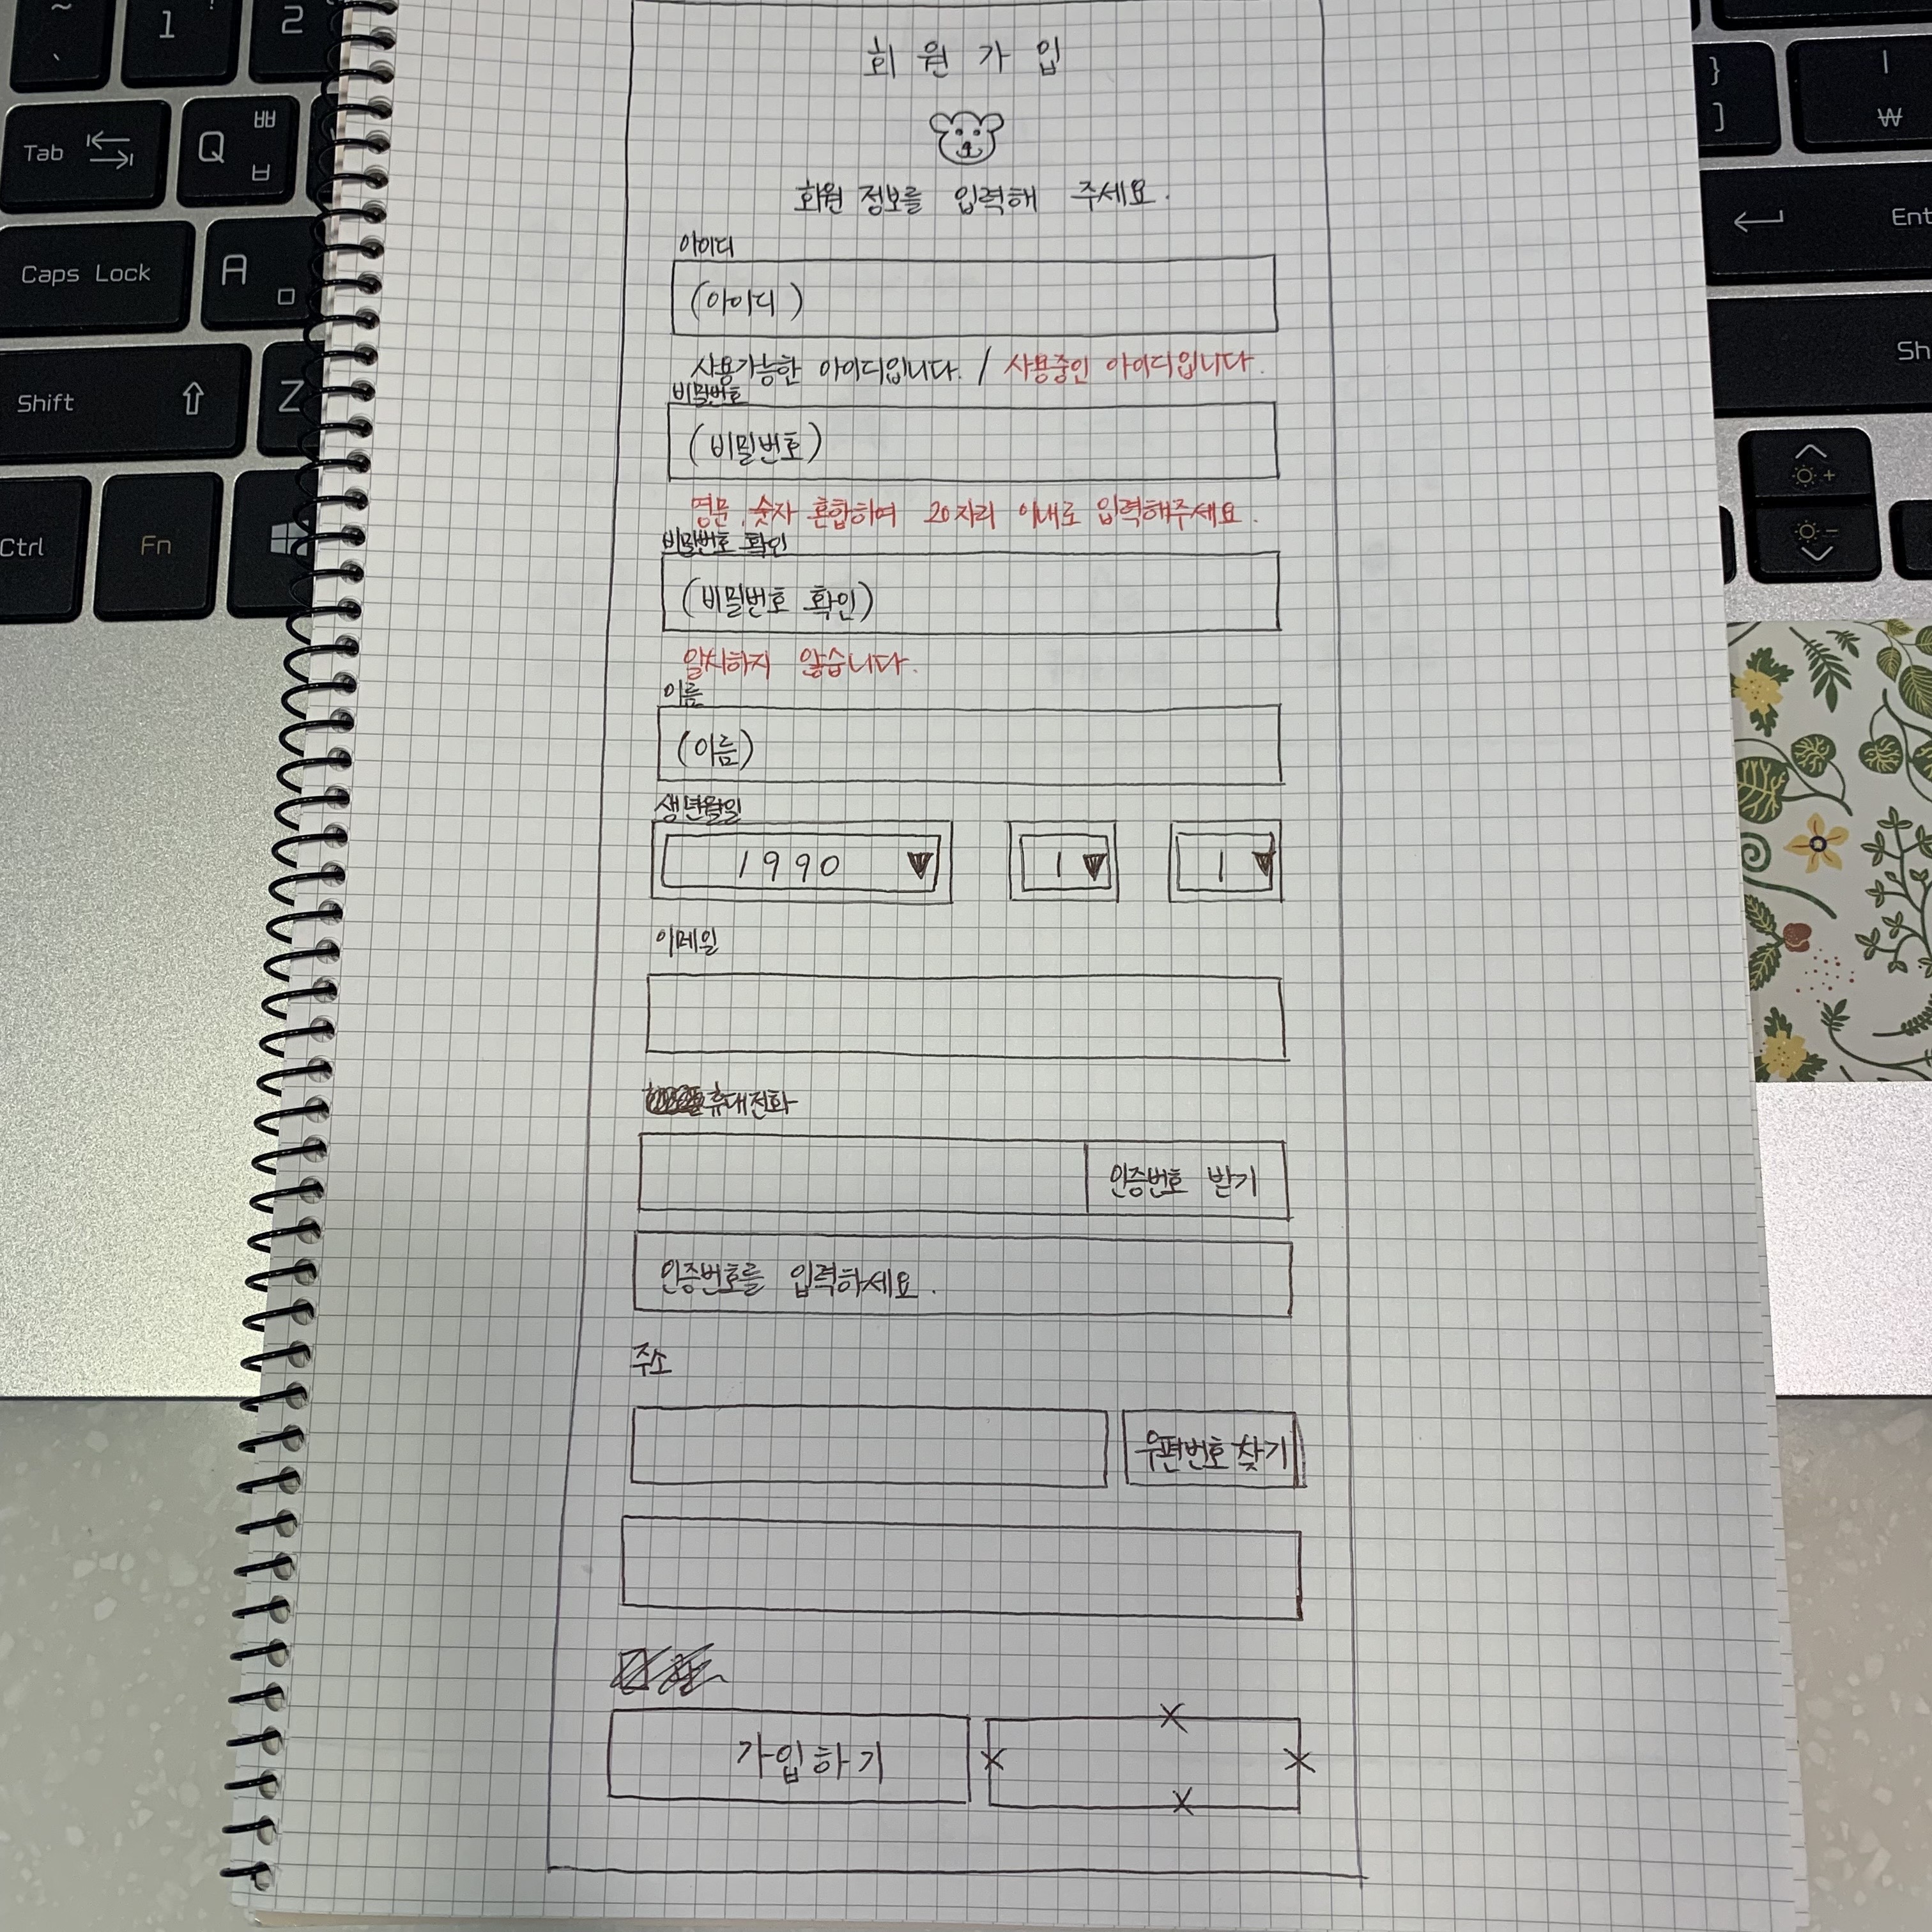 회원가입
회원 정보를 입력해 주세요.
아이디
(아이디)
사용가능한 아이디입니다. / 사용중인 아이디입니다.
비밀번호
(비밀번호)
영문, 숫자 혼합하여 20자리 이내로 입력해주세요.
비밀번호 확인
(비밀번호 확인)
일치하지 않습니다.
이름
(이름)
생년월일
1990 ▼ 1 ▼ 1 ▼
이메일
휴대전화
인증번호 받기
인증번호를 입력하세요.
주소
우편번호 찾기
가입하기
~ `
! 1
2
Tab
Q ㅃ ㅂ
Caps Lock
A ㅁ
Shift
Z
Ctrl
Fn
} ]
| ₩
Ent
Sh
+
-